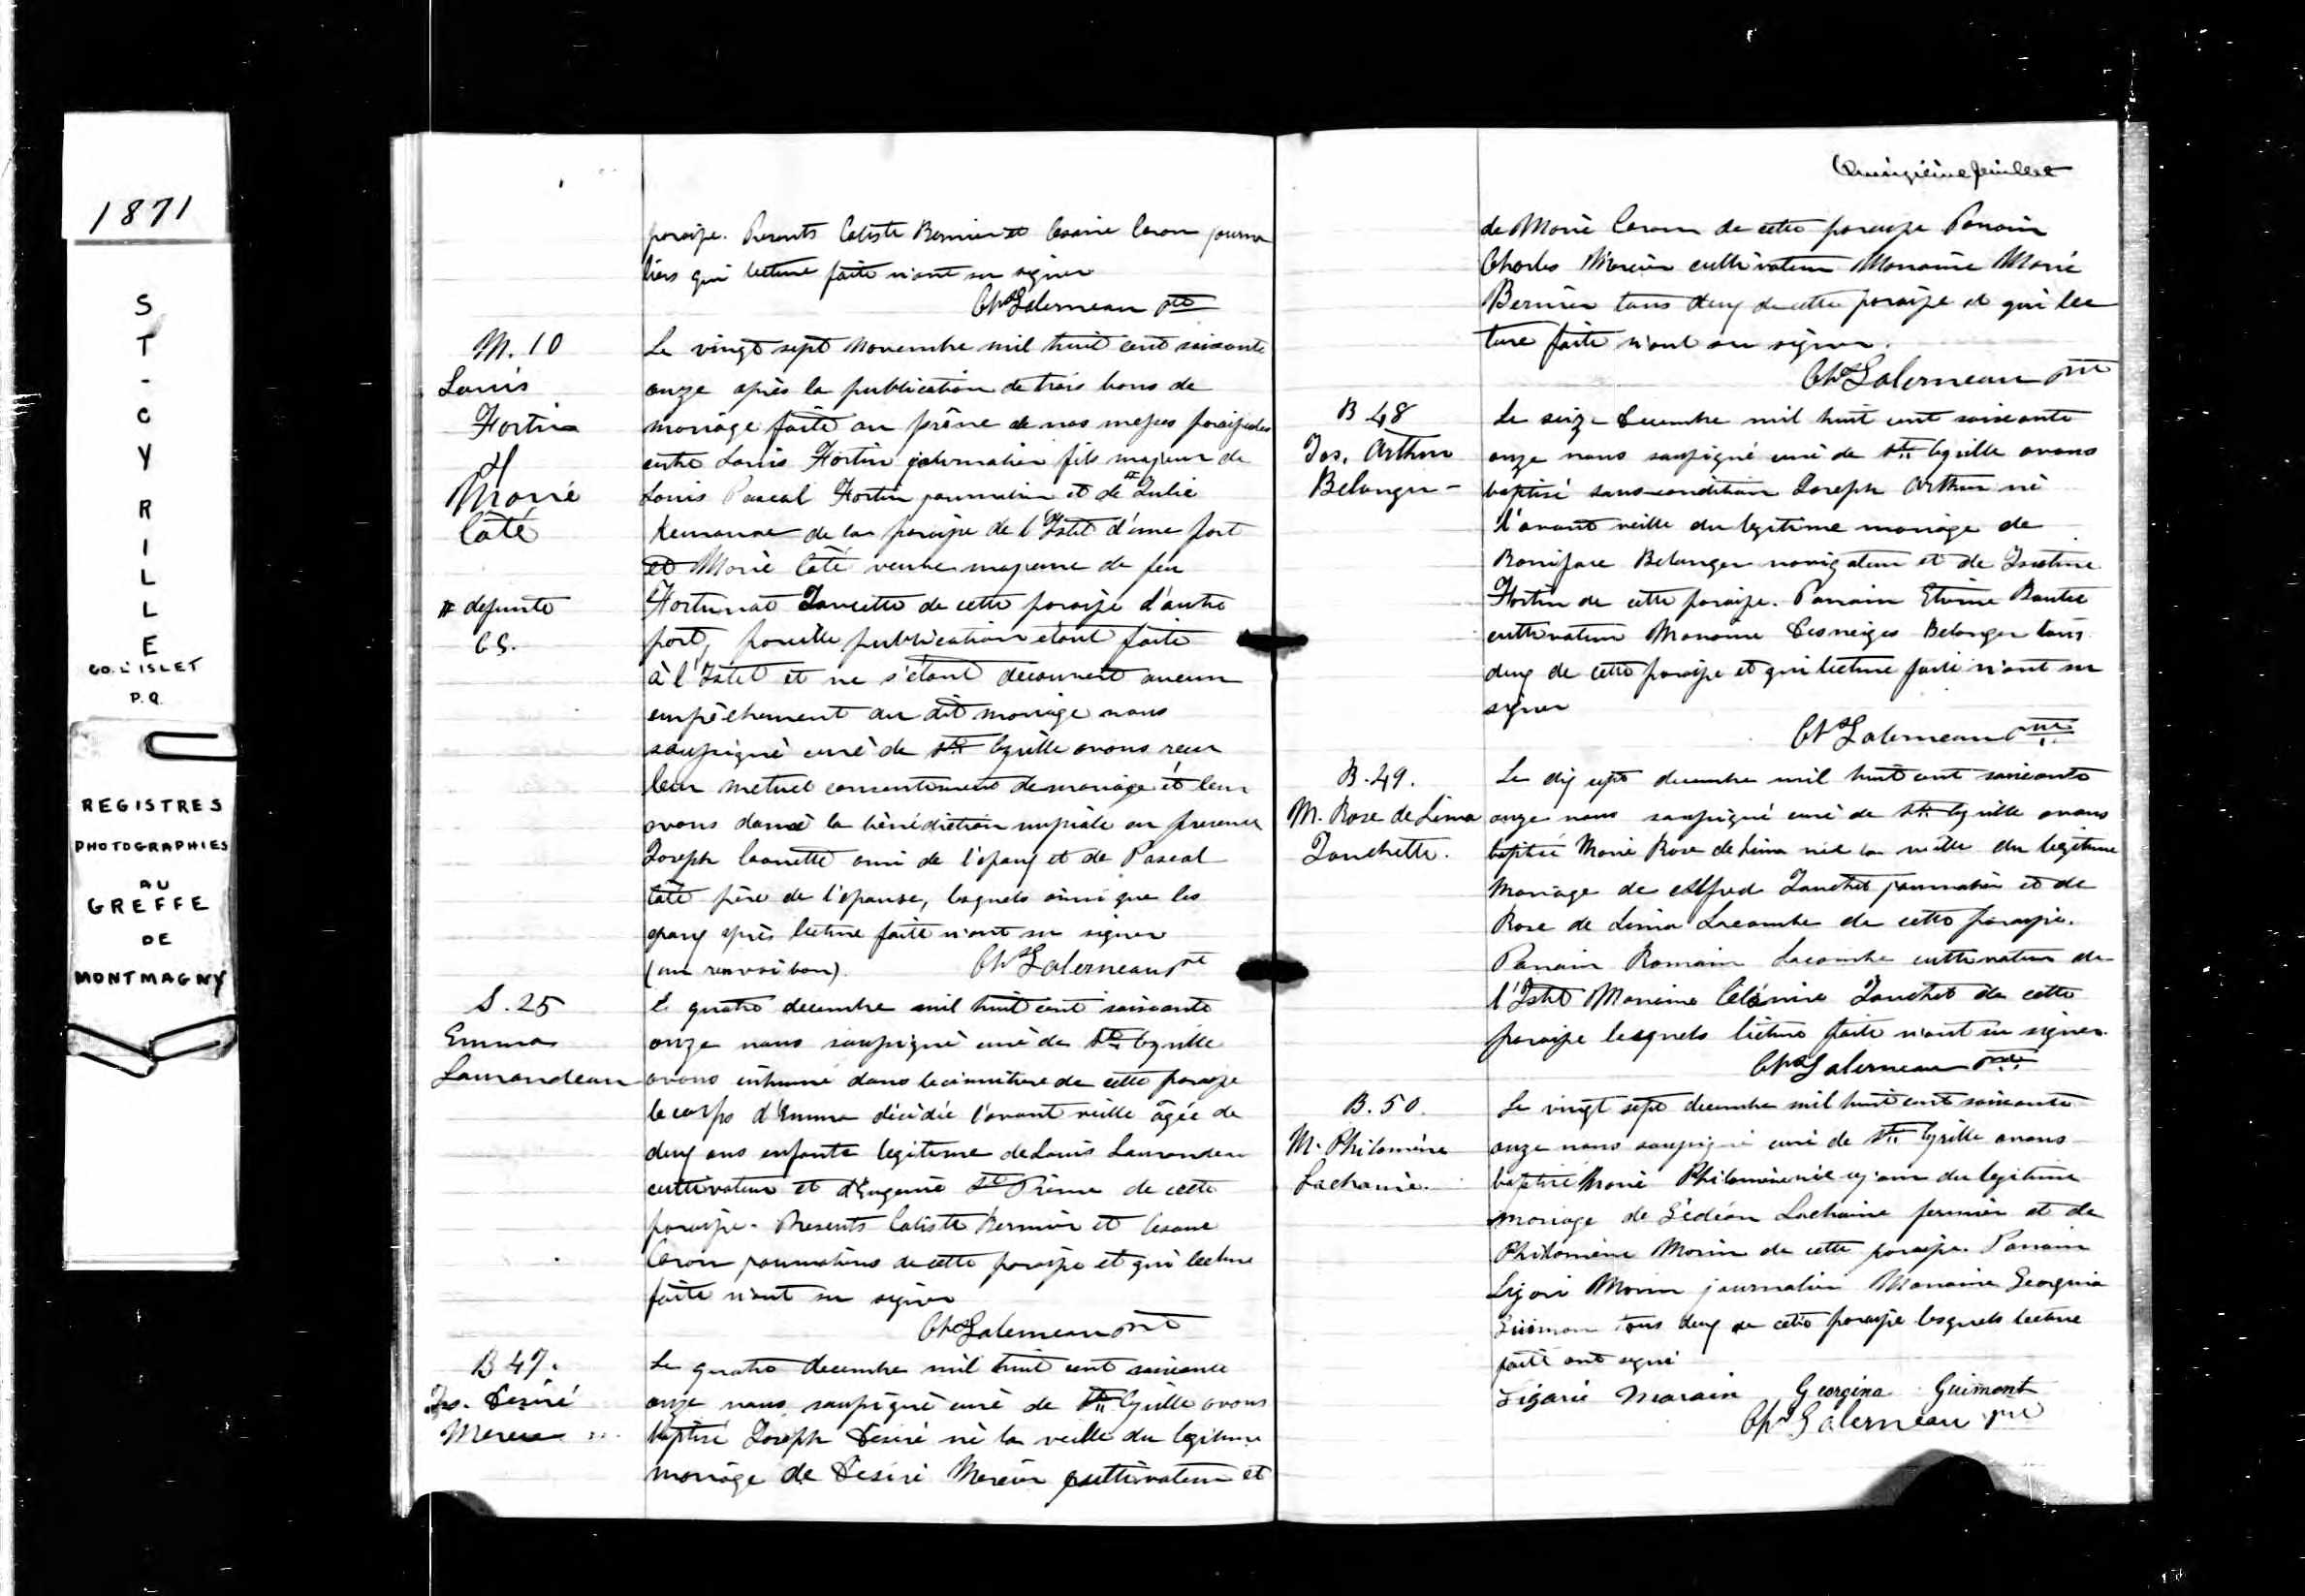 1871
ST-CYRILLE
CO. L'ISLET
P.Q.
REGISTRES
PHOTOGRAPHIES
AU
GREFFE
DE
MONTMAGNY
paroisse. Presents Caliste Bernier et Cesaire Caron journa
liers qui lecture faite n'ont su signer
Chs Galerneau ptre
M. 10
Louis
Fortin
&
Marie
Côté
# defunte
C G.
Le vingt sept Novembre mil huit cent soixante
onze après la publication de trois bans de
mariage faite au prône de nos messes paroissiales
entre Louis Fortin journalier fils majeur de
Louis Pascal Fortin journalier et de # Julie
de la paroisse de l'Islet d'une part
et Marie Côté veuve majeure de feu
Fortunat de cette paroisse d'autre
part, pareille publication étant faite
à l'Islet et ne s'étant découvert aucun
empêchement au dit mariage nous
soussigné curé de St Cyrille avons reçu
leur mutuel consentement de mariage et leur
avons donné la bénédiction nuptiale en presence
Joseph ami de l'époux et de Pascal
Côté père de l'épouse, lesquels ainsi que les
époux après lecture faite n'ont su signer
(un renvoi bon). Chs Galerneau ptre
S. 25
Emma
Laurandeau
Le quatre decembre mil huit cent soixante
onze nous soussigné curé de St Cyrille
avons inhumé dans le cimitiere de cette paroisse
le corps d'Emma décédée l'avant veille âgée de
deux ans enfante legitime de Louis Laurandeau
cultivateur et d'Eugenie St Pierre de cette
paroisse. Presents Caliste Bernier et Cesaire
Caron journaliers de cette paroisse et qui lecture
faite n'ont su signer
Chs Galerneau ptre
B 47.
Jos. Desiré
Mercier
Le quatre decembre mil huit cent soixante
onze nous soussigné curé de St Cyrille avons
baptisé Joseph Desiré né la veille du legitime
mariage de Desiré Mercier cultivateur et
Quinzième feuillet
de Marie Caron de cette paroisse Parrain
Charles Mercier cultivateur Marraine Marie
Bernier tous deux de cette paroisse et qui lec
ture faite n'ont su signer.
Chs Galerneau ptre
B 48
Jos. Arthur
Belanger -
Le seize Decembre mil huit cent soixante
onze nous soussigné curé de St Cyrille avons
baptisé sous condition Joseph Arthur né
l'avant veille du legitime mariage de
Boniface Belanger navigateur et de Justine
Fortin de cette paroisse. Parrain Etienne
cultivateur Marraine Desneiges Belanger tous
deux de cette paroisse et qui lecture faite n'ont su
signer
Chs Galerneau ptre
B. 49.
M. Rose de Lima
Jonchette.
Le dix sept decembre mil huit cent soixante
onze nous soussigné curé de St Cyrille avons
baptisé Marie Rose de Lima née la veille du legitime
Mariage de Alfred journalier et de
Rose de Lima Lacombe de cette paroisse.
Parrain Romain Lacombe cultivateur de
l'Islet Marraine de cette
paroisse lesquels lecture faite n'ont su signer.
Chs Galerneau ptre
B. 50.
M. Philomène
Lachaine.
Le vingt sept decembre mil huit cent soixante
onze nous soussigné curé de St Cyrille avons
baptisé Marie Philomène née ce jour du legitime
mariage de Gédéon Lachaine fermier et de
Philomène Morin de cette paroisse. Parrain
Ligori Morin journalier Marraine Georgina
Guimon tous deux de cette paroisse lesquels lecture
faite ont signé
Ligorie Morain Georgina Guimont
Chs Galerneau ptre